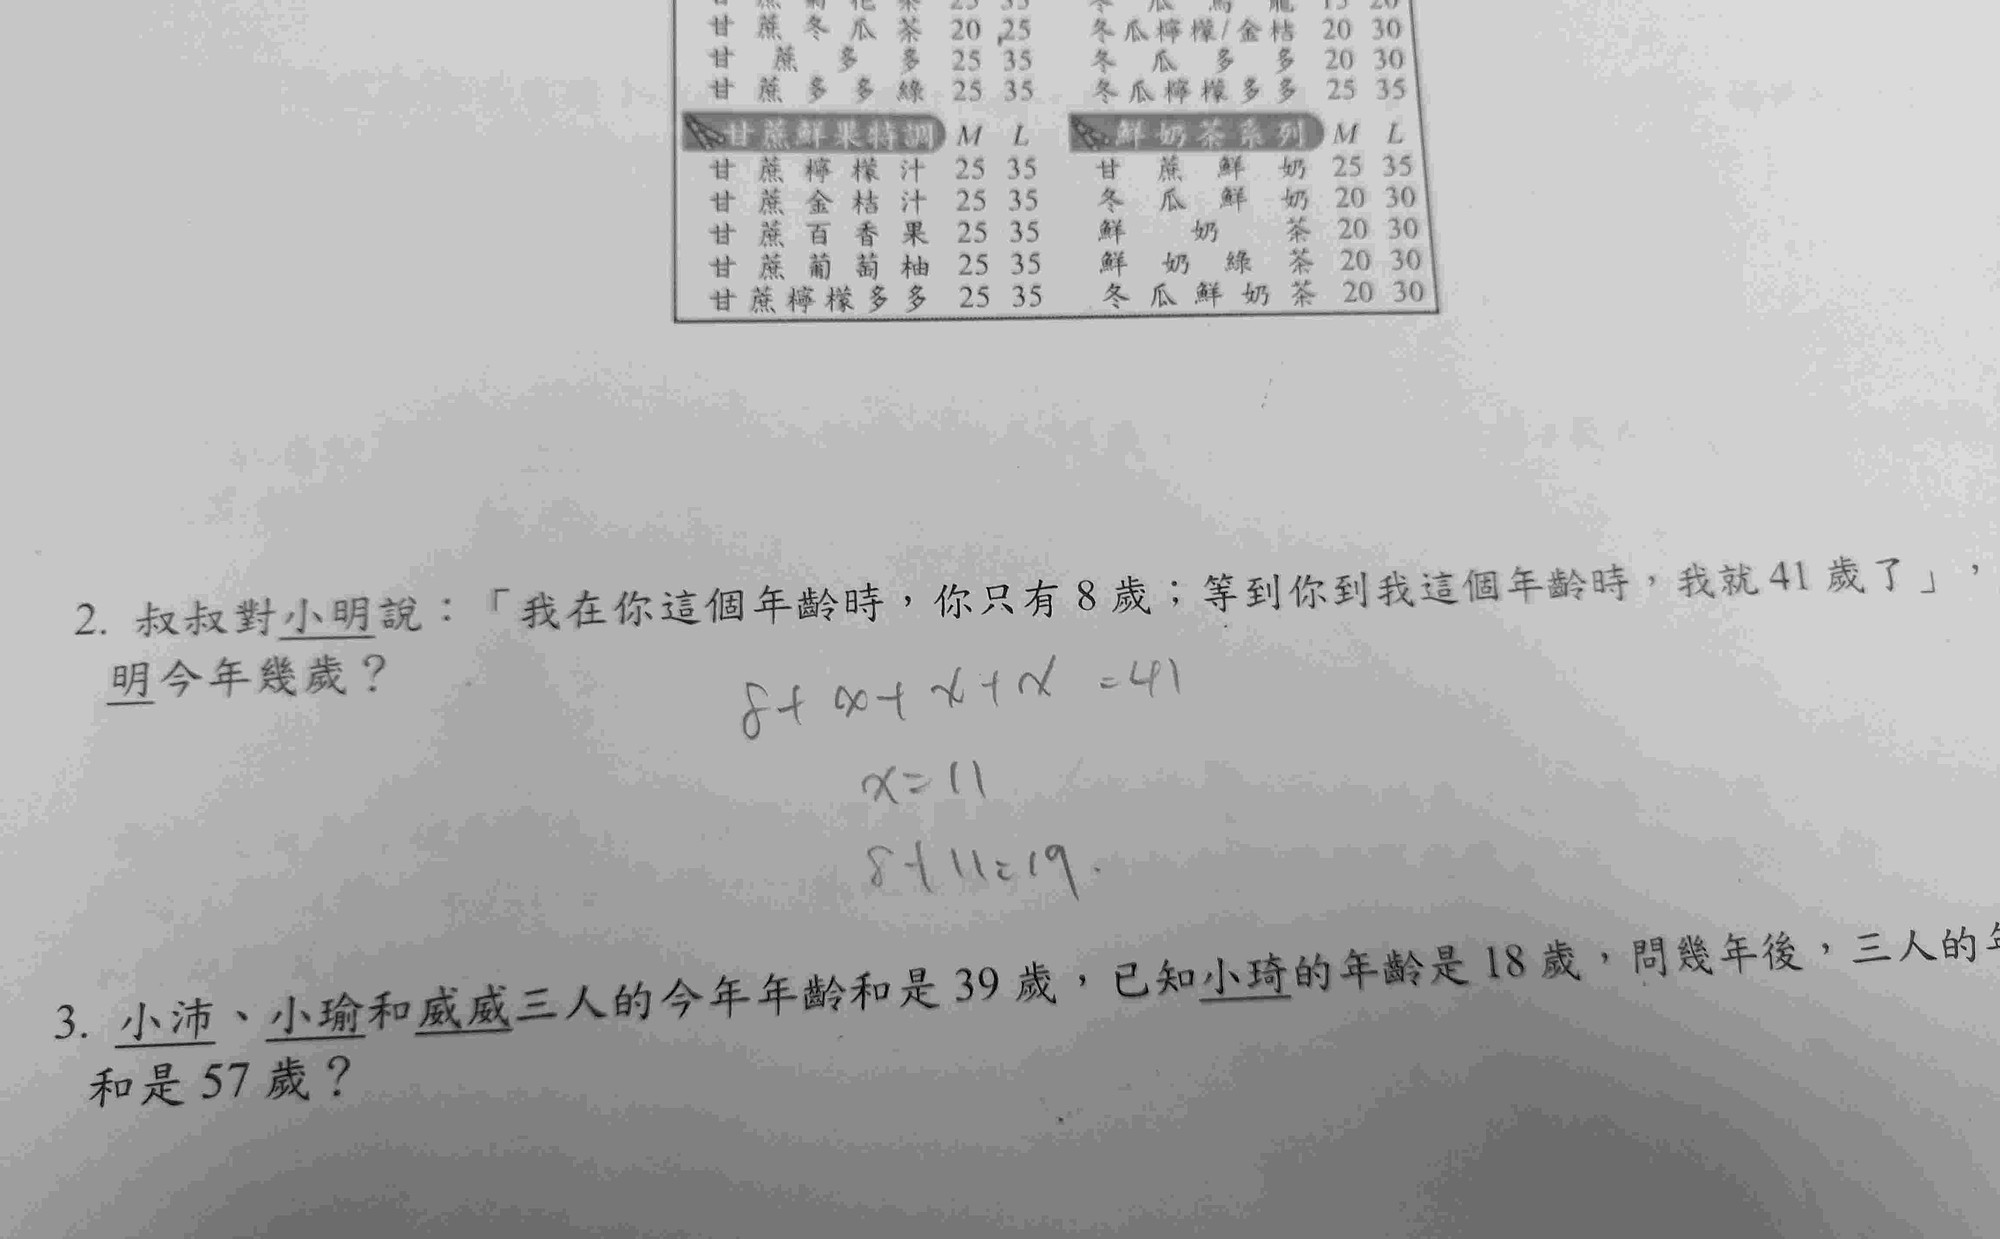 甘蔗冬瓜茶 20 25 冬瓜檸檬/金桔 20 30
甘蔗多多 25 35 冬瓜多多 20 30
甘蔗多多綠 25 35 冬瓜檸檬多多 25 35
甘蔗鮮果特調 M L 鮮奶茶系列 M L
甘蔗檸檬汁 25 35 甘蔗鮮奶 25 35
甘蔗金桔汁 25 35 冬瓜鮮奶 20 30
甘蔗百香果 25 35 鮮奶茶 20 30
甘蔗葡萄柚 25 35 鮮奶綠茶 20 30
甘蔗檸檬多多 25 35 冬瓜鮮奶茶 20 30
2. 叔叔對小明說：「我在你這個年齡時，你只有 8 歲；等到你到我這個年齡時，我就 41 歲了」，
明今年幾歲？
8+x+x+x=41
x=11
8+11=19.
3. 小沛、小瑜和威威三人的今年年齡和是 39 歲，已知小琦的年齡是 18 歲，問幾年後，三人的
和是 57 歲？